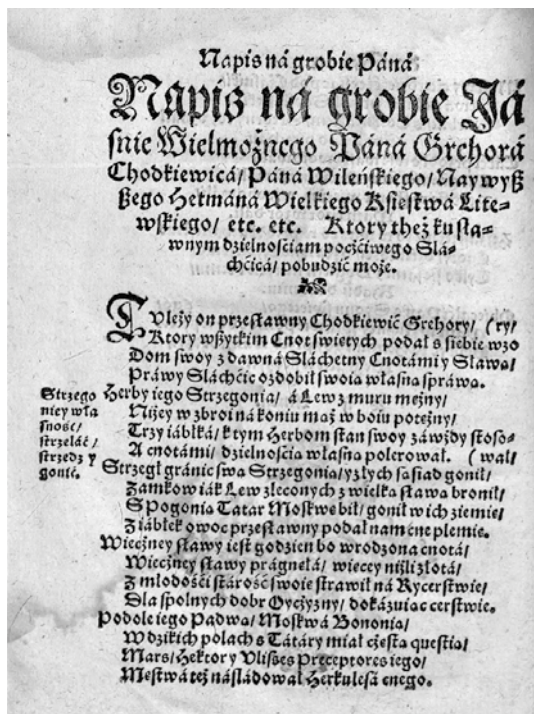 Napis ná grobie Páná
Napis ná grobie Já
śnie Wielmożnego Páná Grehorá
Chodkiewicá / Páná Wileńskiego / Naywyß
ßego Hetmáná Wielkiego Xięstwá Lite⸗
wskiego / etc. etc. Ktory theż ku sła⸗
wnym dzielnościam poczćiwego Slá⸗
chćicá / pobudzić może.
TV leży on przesławny Chodkiewić Grehory / (ry /
Ktory wßytkim Cnot swiętych podał s siebie wzo
Dom swoy z dawná Sláchetny Cnotámi y Sławą /
Práwy Sláchćic ozdobił swoią własną spráwą.
Herby iego Strzegonia / á Lew z muru mężny /
Niżey w zbroi ná koniu mąż w boiu potężny /
Trzy iábłká / k tym Herbom stan swoy záwżdy stoso⸗
A cnotámi / dzielnością własną polerował. (wał /
Strzegł gránic swą Strzegonią / y złych sąsiad gonił /
Zamkow iák Lew zleconych z wielką sławą bronił /
S Pogonią Tatar Moskwę bił / gonił w ich ziemię /
Z iábłek owoc przesławny podał nam cne plemię.
Wiecżney sławy iest godzien bo wrodzona cnotá /
Wiecżney sławy prágnęłá / więcey niżli złotá /
Z młodośći stárość swoię strawił ná Rycerstwie /
Dla spolnych dobr Oyczyzny / dokázuiąc cerstwie.
Podole iego Padwa / Moskwá Bononia /
W dzikich polach s Tátáry miał częstą questią /
Mars / Hektor y Vlisses Preceptores iego /
Męstwá też násládował Herkulesá cnego.
Strzego
niey wła
sność /
strzeláć /
strzedz y
gonić.